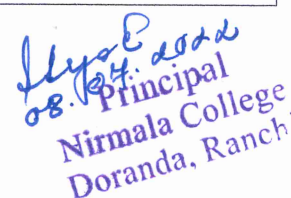 08.07.2022
Principal
Nirmala College
Doranda, Ranch